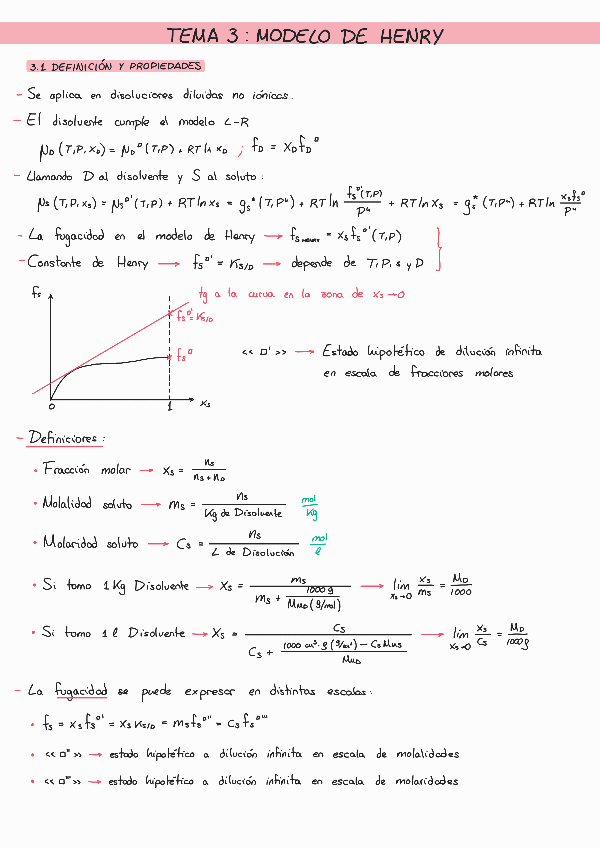 TEMA 3: MODELO DE HENRY
3.1 DEFINICIÓN Y PROPIEDADES
- Se aplica en disoluciones diluidas no iónicas.
- El disolvente cumple el modelo L-R
μD (T,P,xD) = μD⁰ (T,P) + RT ln xD ; fD = xD fD⁰
- Llamando D al disolvente y S al soluto:
μs (T,P,xs) = μs⁰' (T,P) + RT ln xs = gs* (T,Pᵘ) + RT ln fs⁰'(T,P)/Pᵘ + RT ln xs = gs* (T,Pᵘ) + RT ln xs fs⁰'/Pᵘ
- La fugacidad en el modelo de Henry → fs HENRY = xs fs⁰' (T,P)
- Constante de Henry → fs⁰' = Ks/D → depende de T, P, s y D
fs
tg a la curva en la zona de xs→0
fs⁰' = Ks/D
fs⁰
<< □' >> → Estado hipotético de dilución infinita
en escala de fracciones molares
0 1 xs
- Definiciones:
• Fracción molar → xs = ns / (ns + nD)
• Molalidad soluto → ms = ns / Kg de Disolvente mol/Kg
• Molaridad soluto → Cs = ns / L de Disolución mol/l
• Si tomo 1 Kg Disolvente → xs = ms / (ms + 1000 g / MMD (g/mol)) → lim xs→0 xs/ms = MD/1000
• Si tomo 1 l Disolvente → xs = Cs / (Cs + (1000 cm³·ρ (g/cm³) - Cs MMS) / MMD) → lim xs→0 xs/Cs = MD/1000ρ
- La fugacidad se puede expresar en distintas escalas:
• fs = xs fs⁰' = xs Ks/D = ms fs⁰'' = Cs fs⁰'''
• << □'' >> → estado hipotético a dilución infinita en escala de molalidades
• << □''' >> → estado hipotético a dilución infinita en escala de molaridades